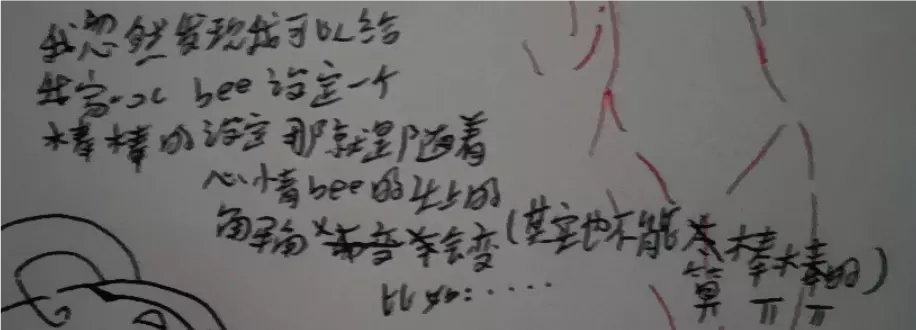 我忽然发现我可以给
我家.oc bee设定一个
棒棒的设定 那就是随着
心情bee的头上的
角角会变(其实也不能算棒棒的)
比如:.....